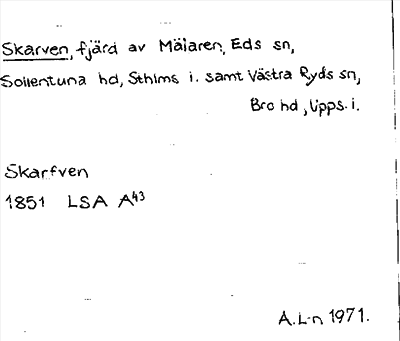 Skarven, fjärd av Mälaren, Eds sn,
Sollentuna hd, Sthlms l. samt Västra Ryds sn,
Bro hd, Upps. l.
Skarfven
1851 LSA A43
A.L-n 1971.